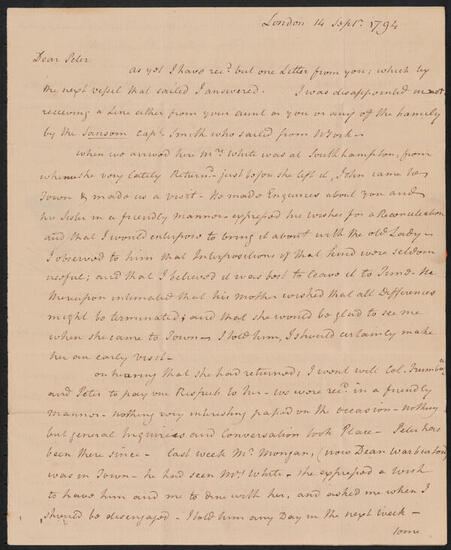 London 14 Sept. 1794
Dear Peter
as yet I have recd. but one Letter from you; which by
the next vessel that sailed I answered. I was disappointed in not
receiving a Line either from your aunt or you or any of the family
by the Sansom Capt. Smith who sailed from NYork—
When we arrived here Mrs. White was at Southhampton, from
whence she very lately Returnd. just before she left it, John came to
Town & made us a visit— He made Enquiries about you and
his Sister in a friendly manner— expressed his wishes for a Reconciliation
and that I would interpose to bring it about with the old Lady—
I observed to him that Interpositions of that kind were seldom
useful; and that I believed it was best to leave it to Time— He
thereupon intimated that his mother wished that all Differences
might be terminated; and that she would be glad to see me
when she came to Town— I told him, I should certainly make
her an early visit—
on hearing that she had returned; I went with Col. Trumbull
and Peter to pay our Respects to her— we were recd. in a friendly
manner— nothing very interesting passed on the occasion— nothing
but general Inquiries and Conversation took Place— Peter has
been there since— last week Mr. Morgan, (now Dean Warburton)
was in Town— he had seen Mrs. White— she expressed a wish
to have him and me to dine with her, and asked me when I
should be disengaged— I told him any Day in the next week—
some